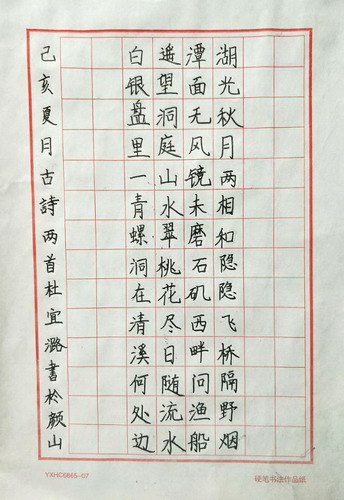 湖光秋月两相和隐隐飞桥隔野烟
潭面无风镜未磨石矶西畔问渔船
遥望洞庭山水翠桃花尽日随流水
白银盘里一青螺洞在清溪何处边
己亥夏月古詩两首杜宜潞書於颜山
YXHC6865-07
硬笔书法作品纸